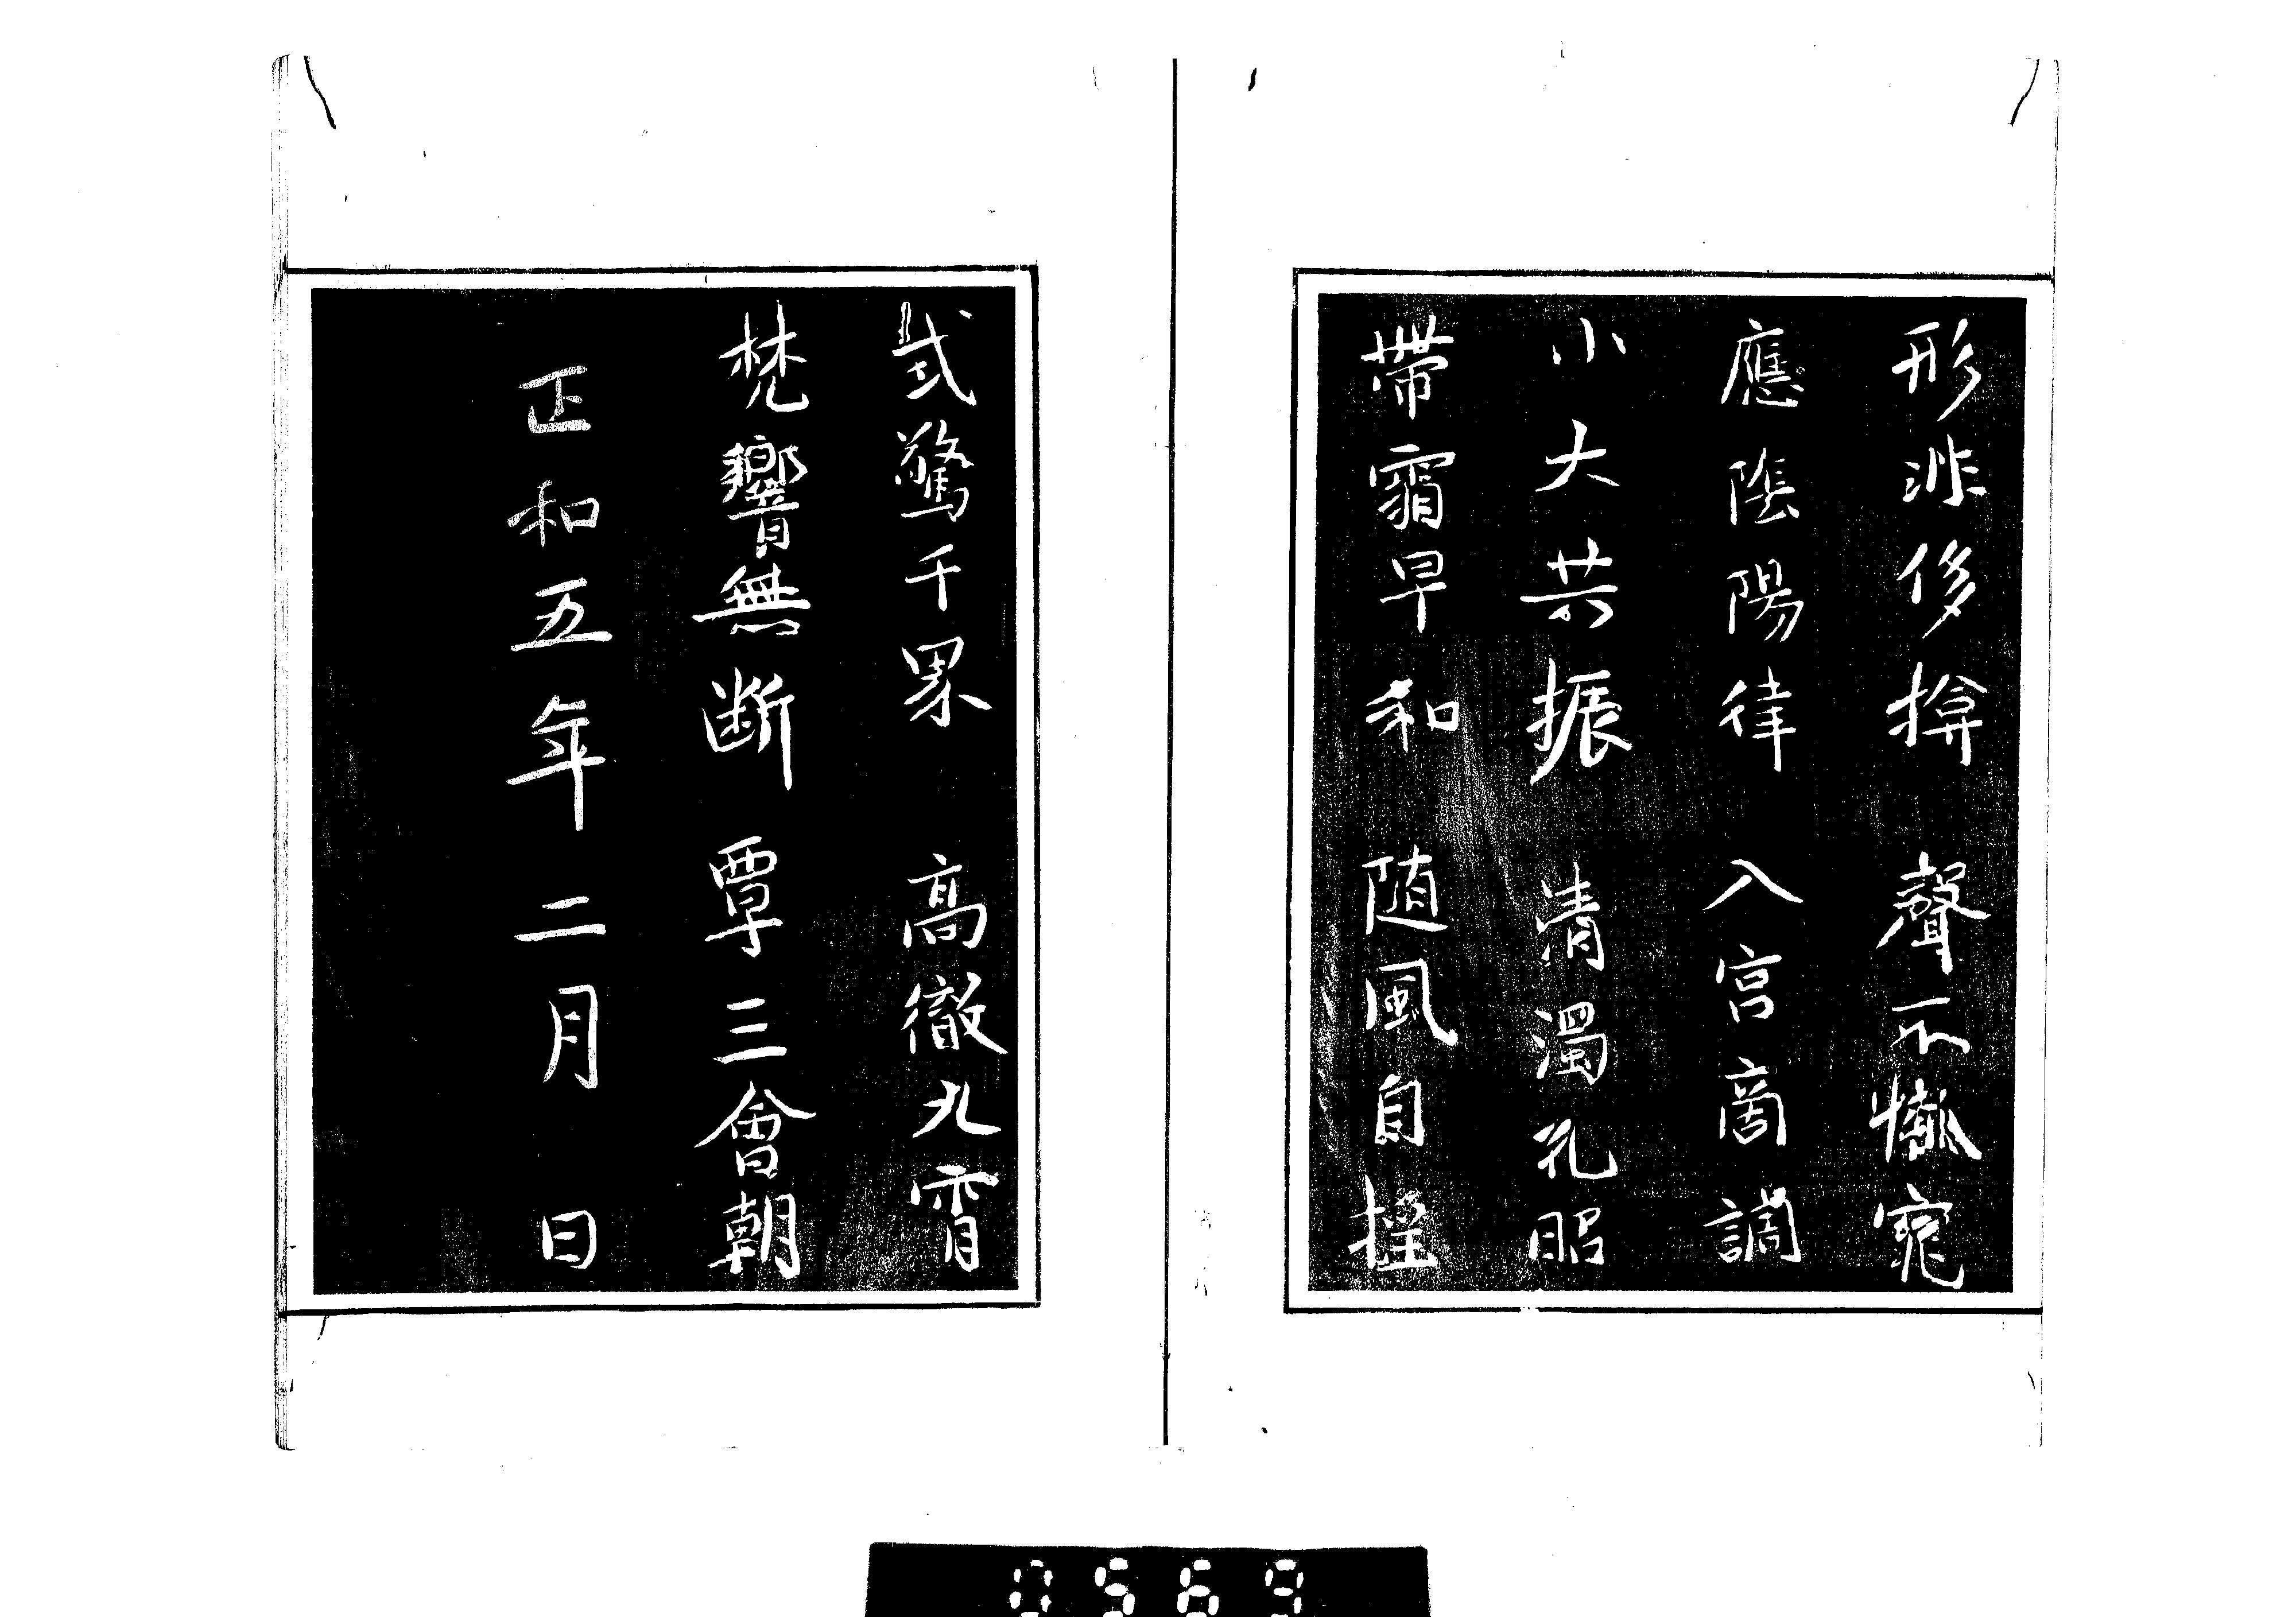 形非侈揜　聲不櫳窕
應陰陽律　入宮商調
小大共振　清濁孔昭
帶霜早和　随風自摇
式驚千界　高徹九霄
梵響無断　覃三會朝
正和五年二月　日
0569